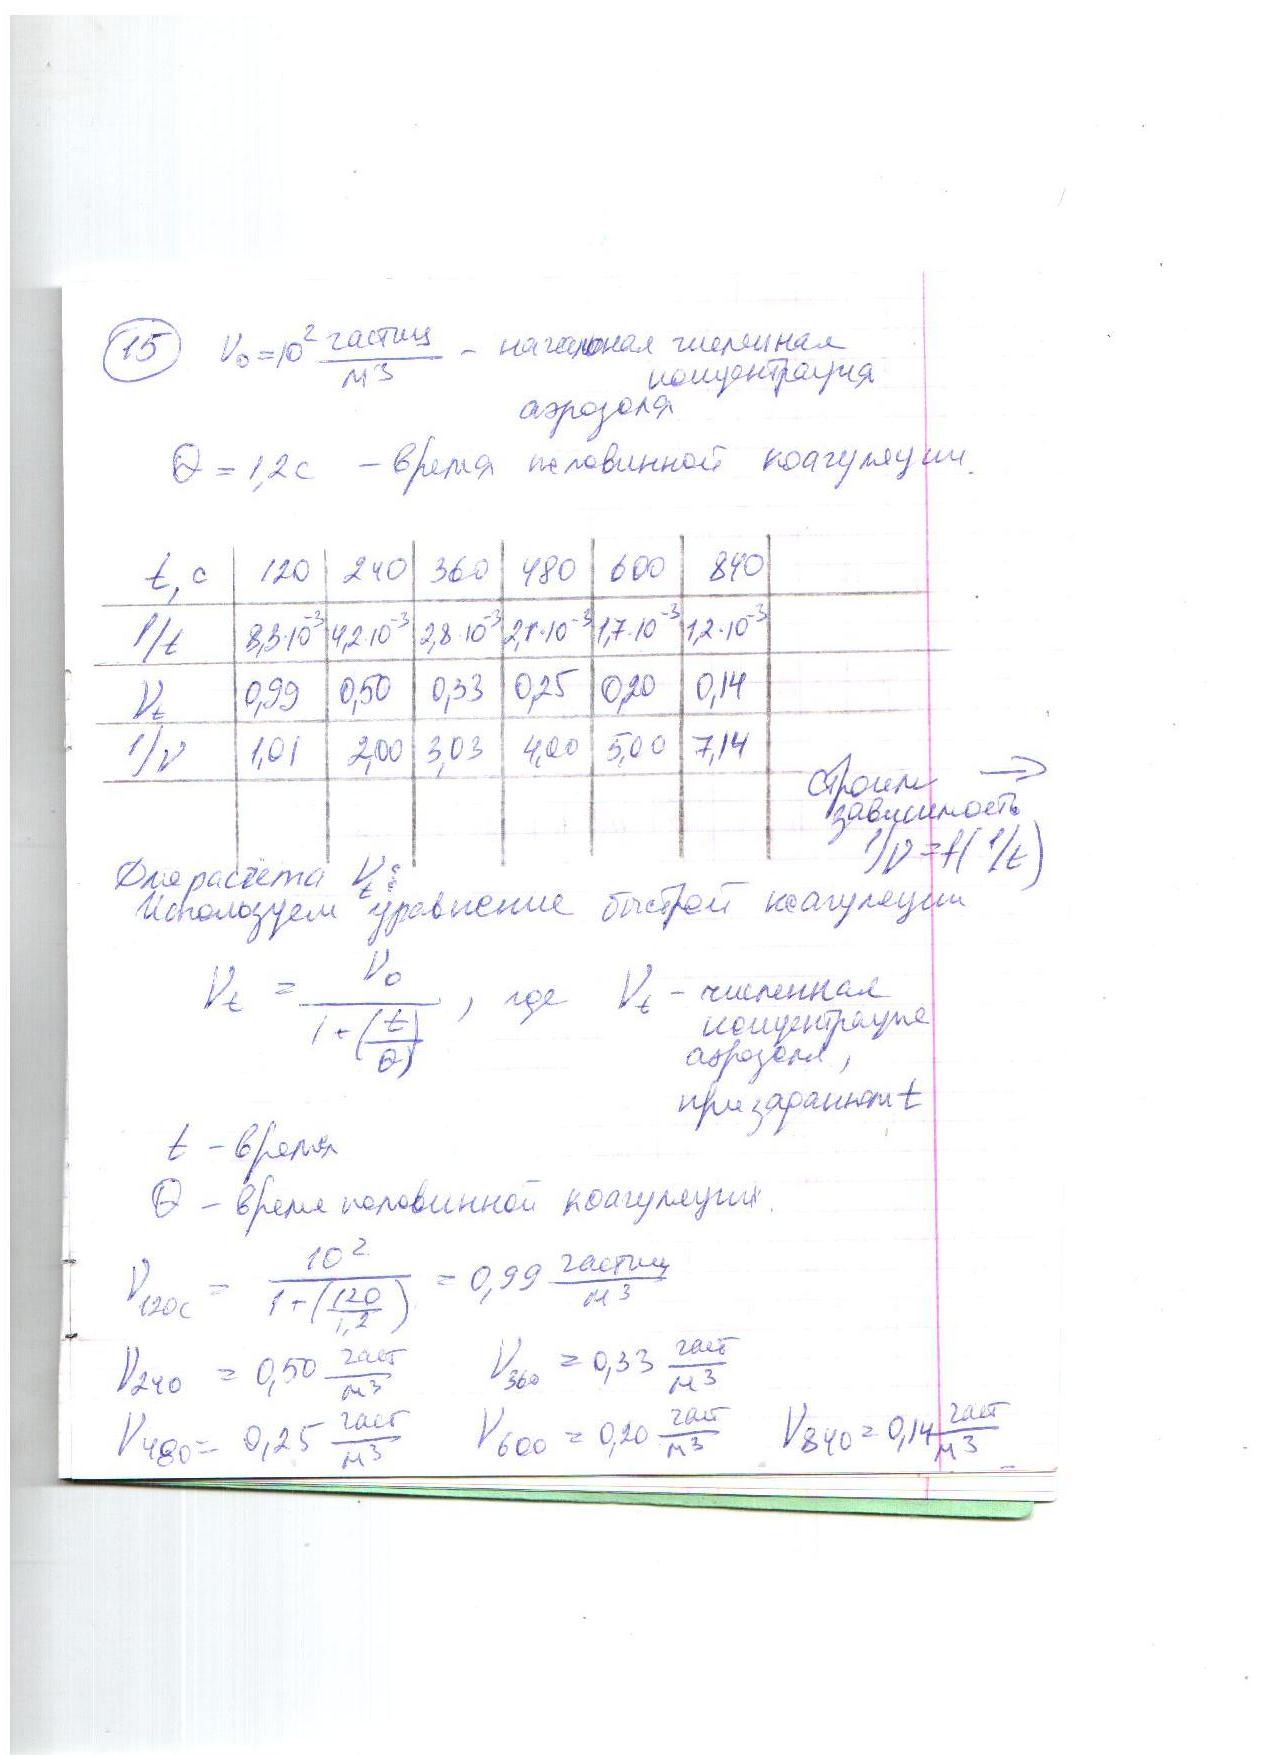 15 V₀ = 10² частиц/м³ – начальная численная
концентрация
аэрозоля
Θ = 1,2 с – время половинной коагуляции.
t, с 120 240 360 480 600 840
1/t 8,3·10⁻³ 4,2·10⁻³ 2,8·10⁻³ 2,1·10⁻³ 1,7·10⁻³ 1,2·10⁻³
Vt 0,99 0,50 0,33 0,25 0,20 0,14
1/V 1,01 2,00 3,03 4,00 5,00 7,14
Строим →
зависимость
1/V = f(1/t)
Для расчёта Vt:
Используем уравнение быстрой коагуляции
Vt = V₀/(1+(t/Θ)), где Vt – численная
концентрация
аэрозоля,
при заданном t
t – время
Θ – время половинной коагуляции.
V120с = 10²/(1+(120/1,2)) = 0,99 частиц/м³
V240 = 0,50 част/м³ V360 = 0,33 част/м³
V480 = 0,25 част/м³ V600 = 0,20 част/м³ V840 = 0,14 част/м³